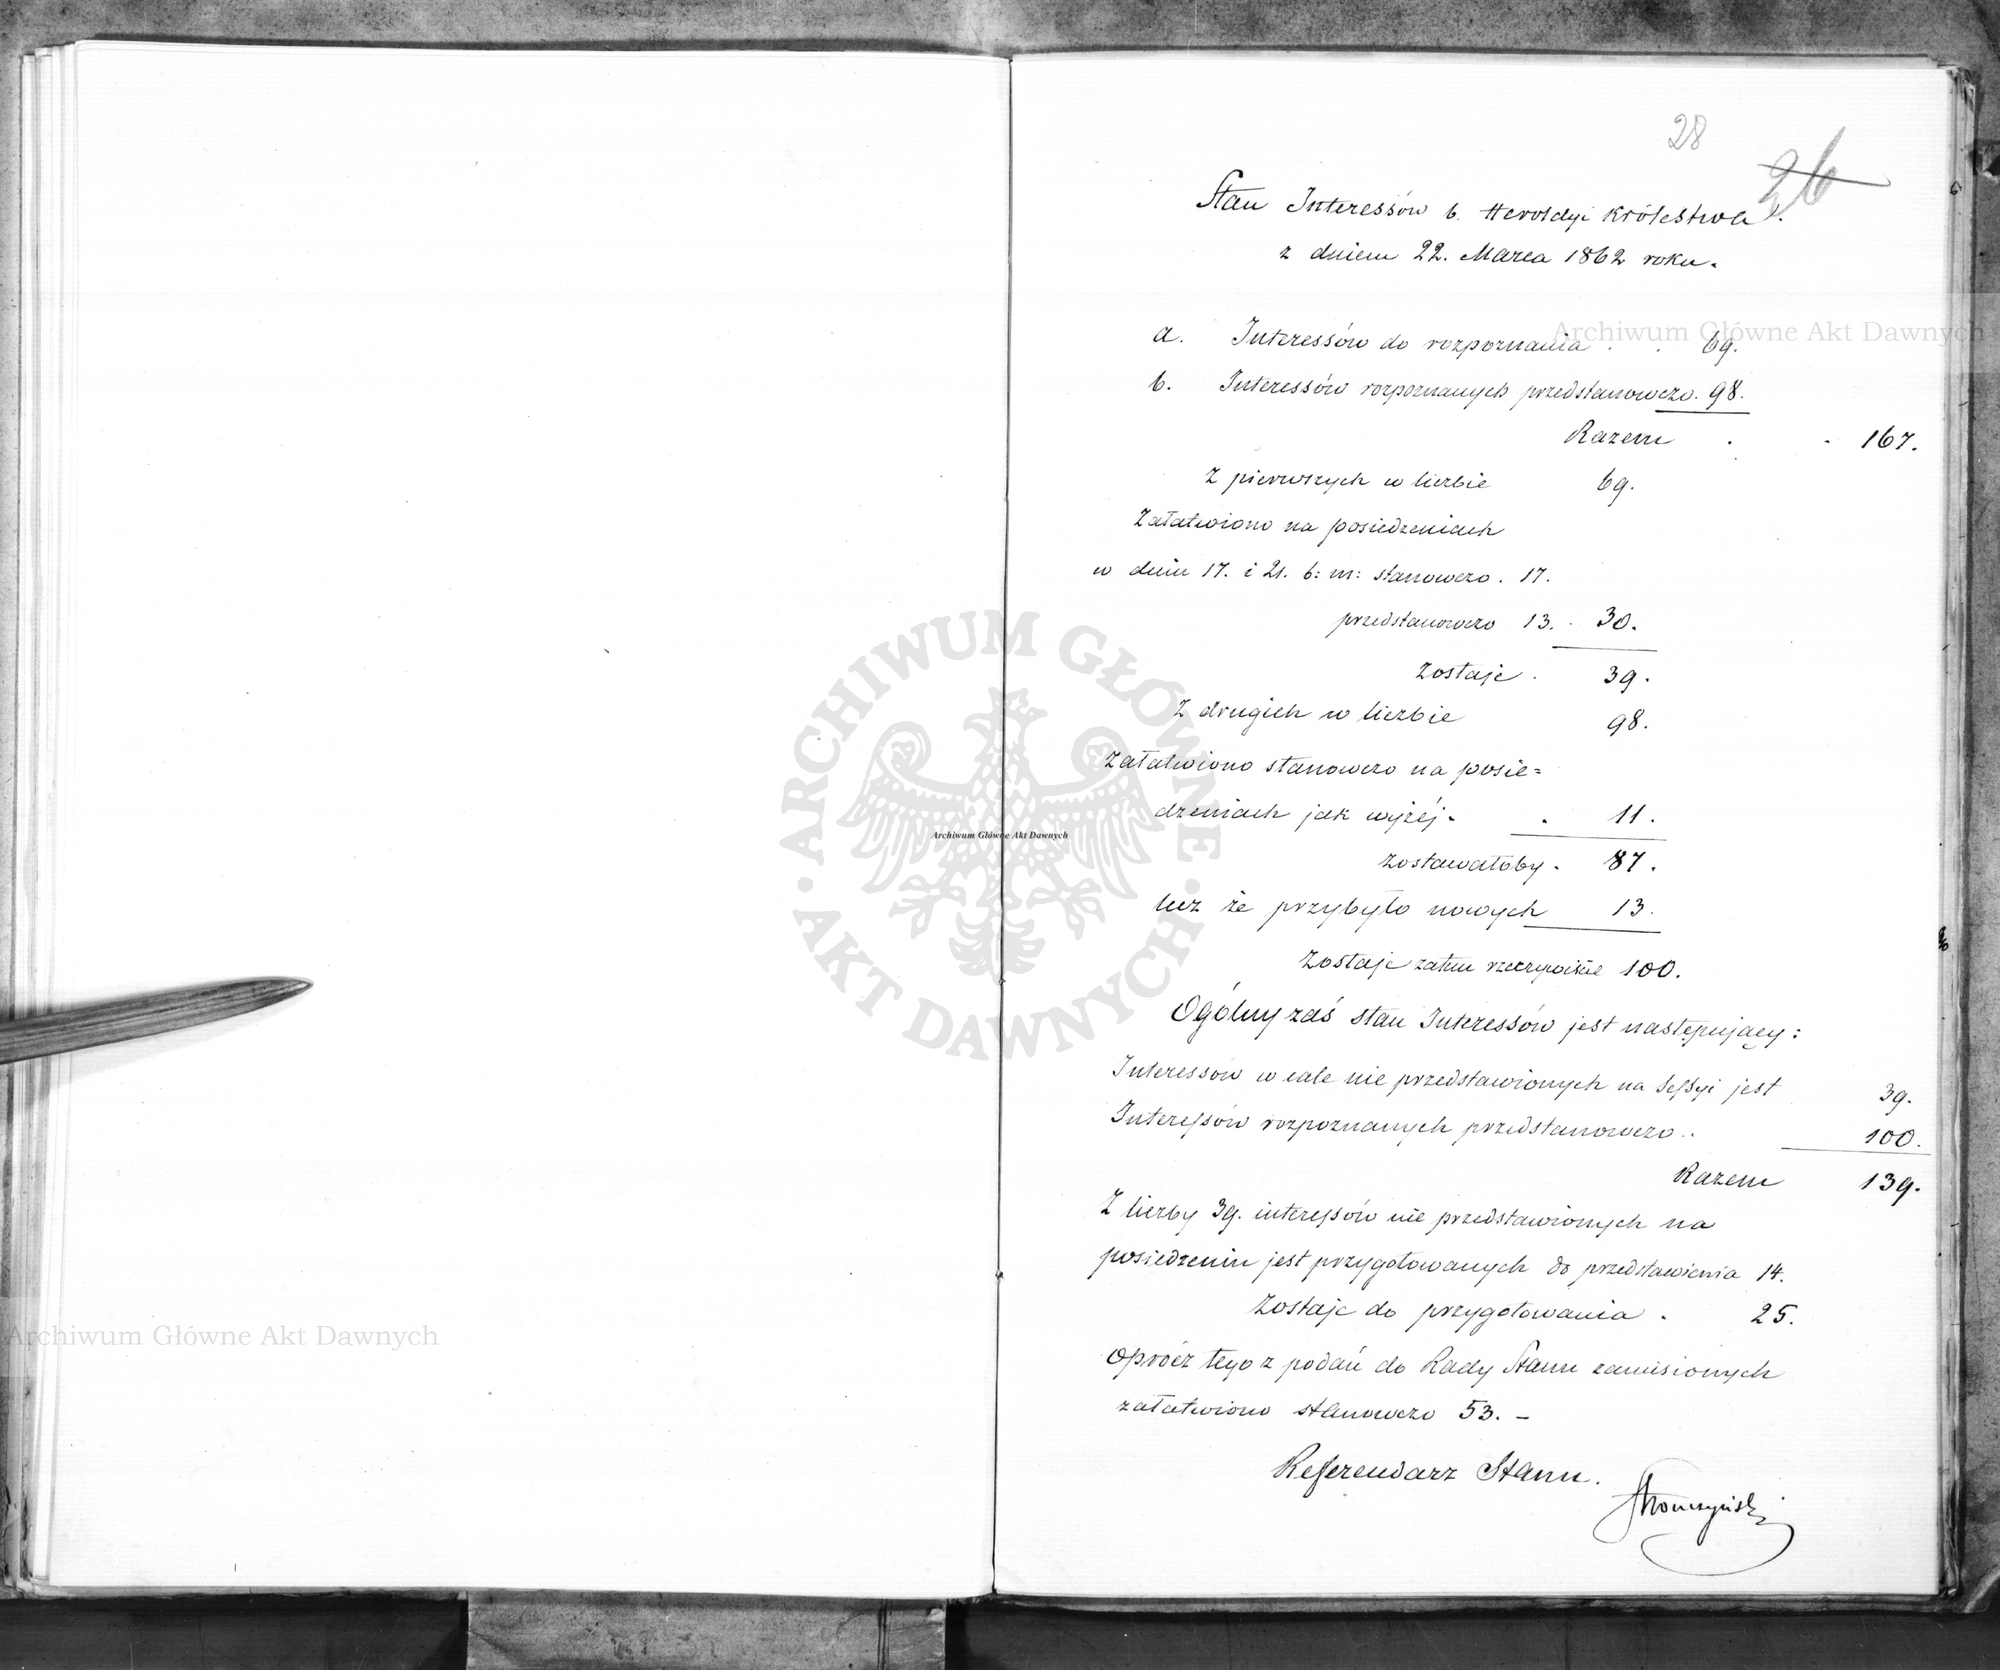 28
26
Stan Interessów b. Heroldyi Królestwa.
z dniem 22. Marca 1862 roku.
a. Interessów do rozpoznania . . 69.
b. Interessów rozpoznanych przedstanowczo. 98.
Razem . . 167.
Z pierwszych w liczbie 69.
Załatwiono na posiedzeniach
w dniu 17. i 21. b: m: stanowczo. 17.
przedstanowczo 13. . 30.
Zostaje . 39.
Z drugich w liczbie 98.
Załatwiono stanowczo na posie=
dzeniach jak wyżéj. . 11.
Zostawałoby . 87.
lecz że przybyło nowych 13.
Zostaje zatem rzeczywiście 100.
Ogólny zaś stan Interessów jest następujący:
Interessów wcale nie przedstawionych na Sessyi jest 39.
Interessów rozpoznanych przedstanowczo . . 100.
Razem 139.
Z liczby 39. interessów nie przedstawionych na
posiedzeniu jest przygotowanych do przedstawienia 14.
Zostaje do przygotowania . 25.
Oprócz tego z podań do Rady Stanu zaniesionych
załatwiono stanowczo 53. –
Referendarz Stanu.
Stronczyński
Archiwum Główne Akt Dawnych
ARCHIWUM GŁÓWNE · AKT DAWNYCH ·
Archiwum Główne Akt Dawnych
Archiwum Główne Akt Dawnych